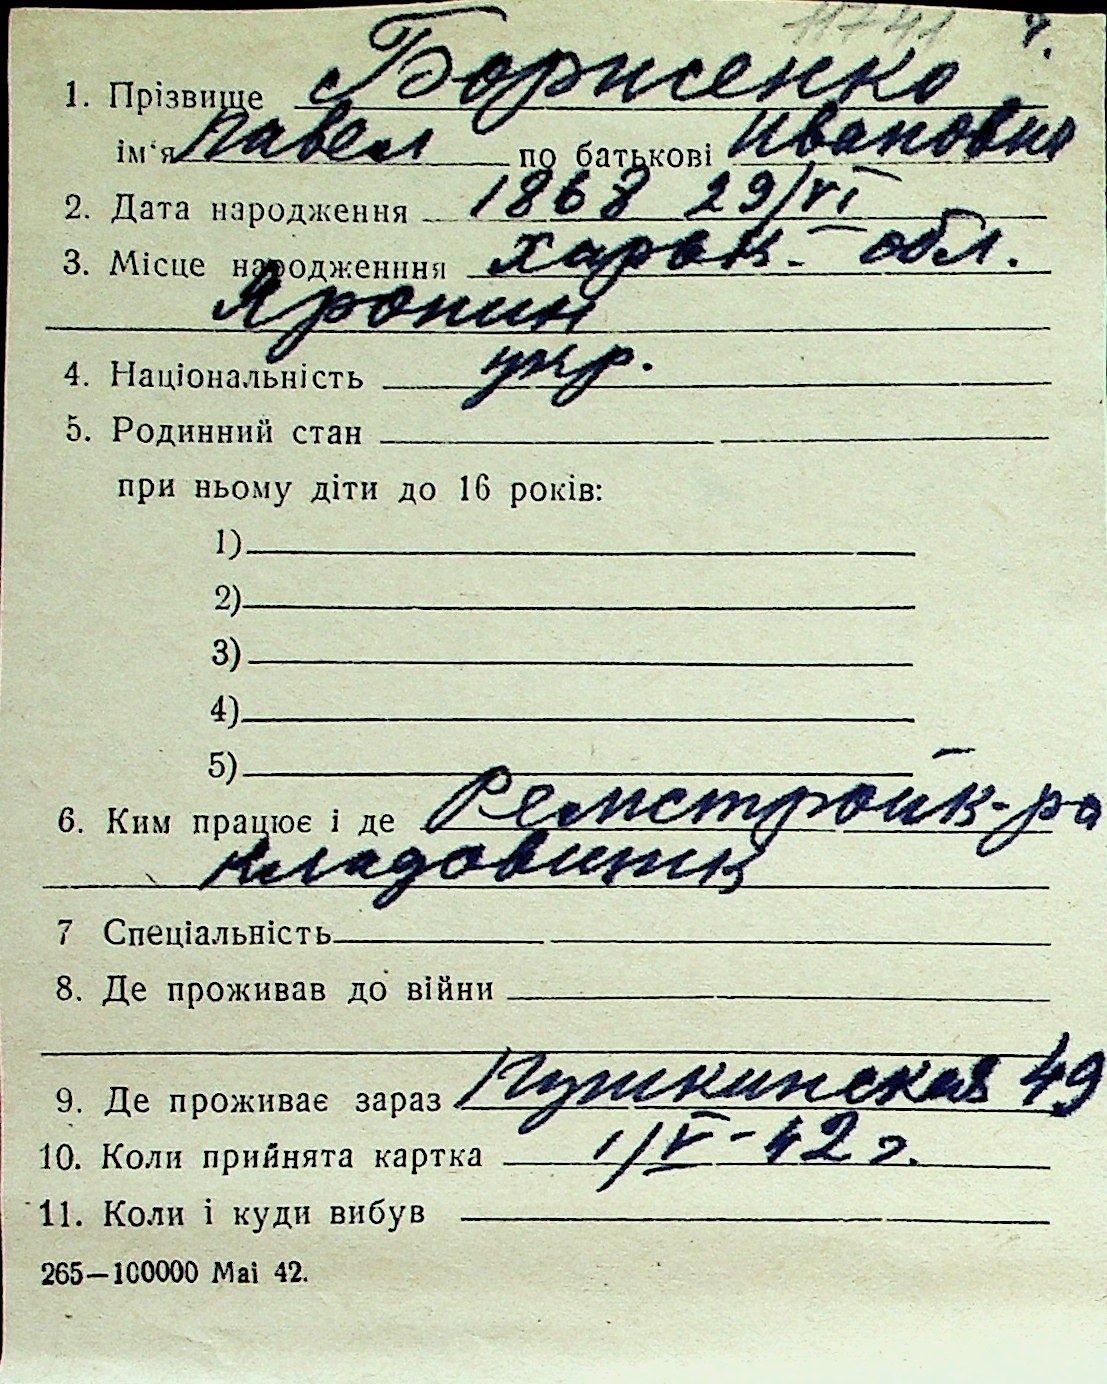 11741 ч.
1. Прізвище Борисенко
ім'я Павел по батькові Иванович
2. Дата народження 1868 29/VI
3. Місце народженння Харьк. обл.
4. Національність укр.
5. Родинний стан
при ньому діти до 16 років:
1)
2)
3)
4)
5)
6. Ким працює і де Ремстройк-ра
кладовщик
7 Спеціальність
8. Де проживав до війни
9. Де проживає зараз Пушкинская 49
10. Коли прийнята картка 1/V-42 г.
11. Коли і куди вибув
265—100000 Mai 42.